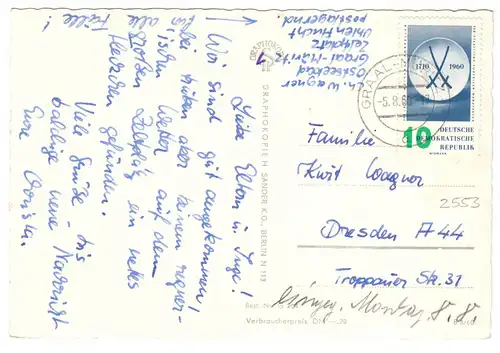 Liebe Eltern u. Inge!
Wir sind gut angekommen!
bei trüben aber keinem regner-
ischen Wetter auf dem
großen Zeltplatz ein nettes
gefunden.
Viele Grüße bis
baldige neue Nachricht
Eure
für alle
Fälle!
Wagner
Ostseebad
Graal-Müritz
Zeltplatz
Uhlenflucht
postlagernd
GRAPHOKOPIE
GRAPHOKOPIE H. SANDER K.G. BERLIN N 113
Best.-Nr.
Verbraucherpreis DM -,20
GRAAL-M
-5.8.60
1710 1960
10 DEUTSCHE
DEMOKRATISCHE
REPUBLIK
Familie
Kurt Wagner
2553
Dresden A 44
Troppauer Str. 31
Montag, 8. 8.